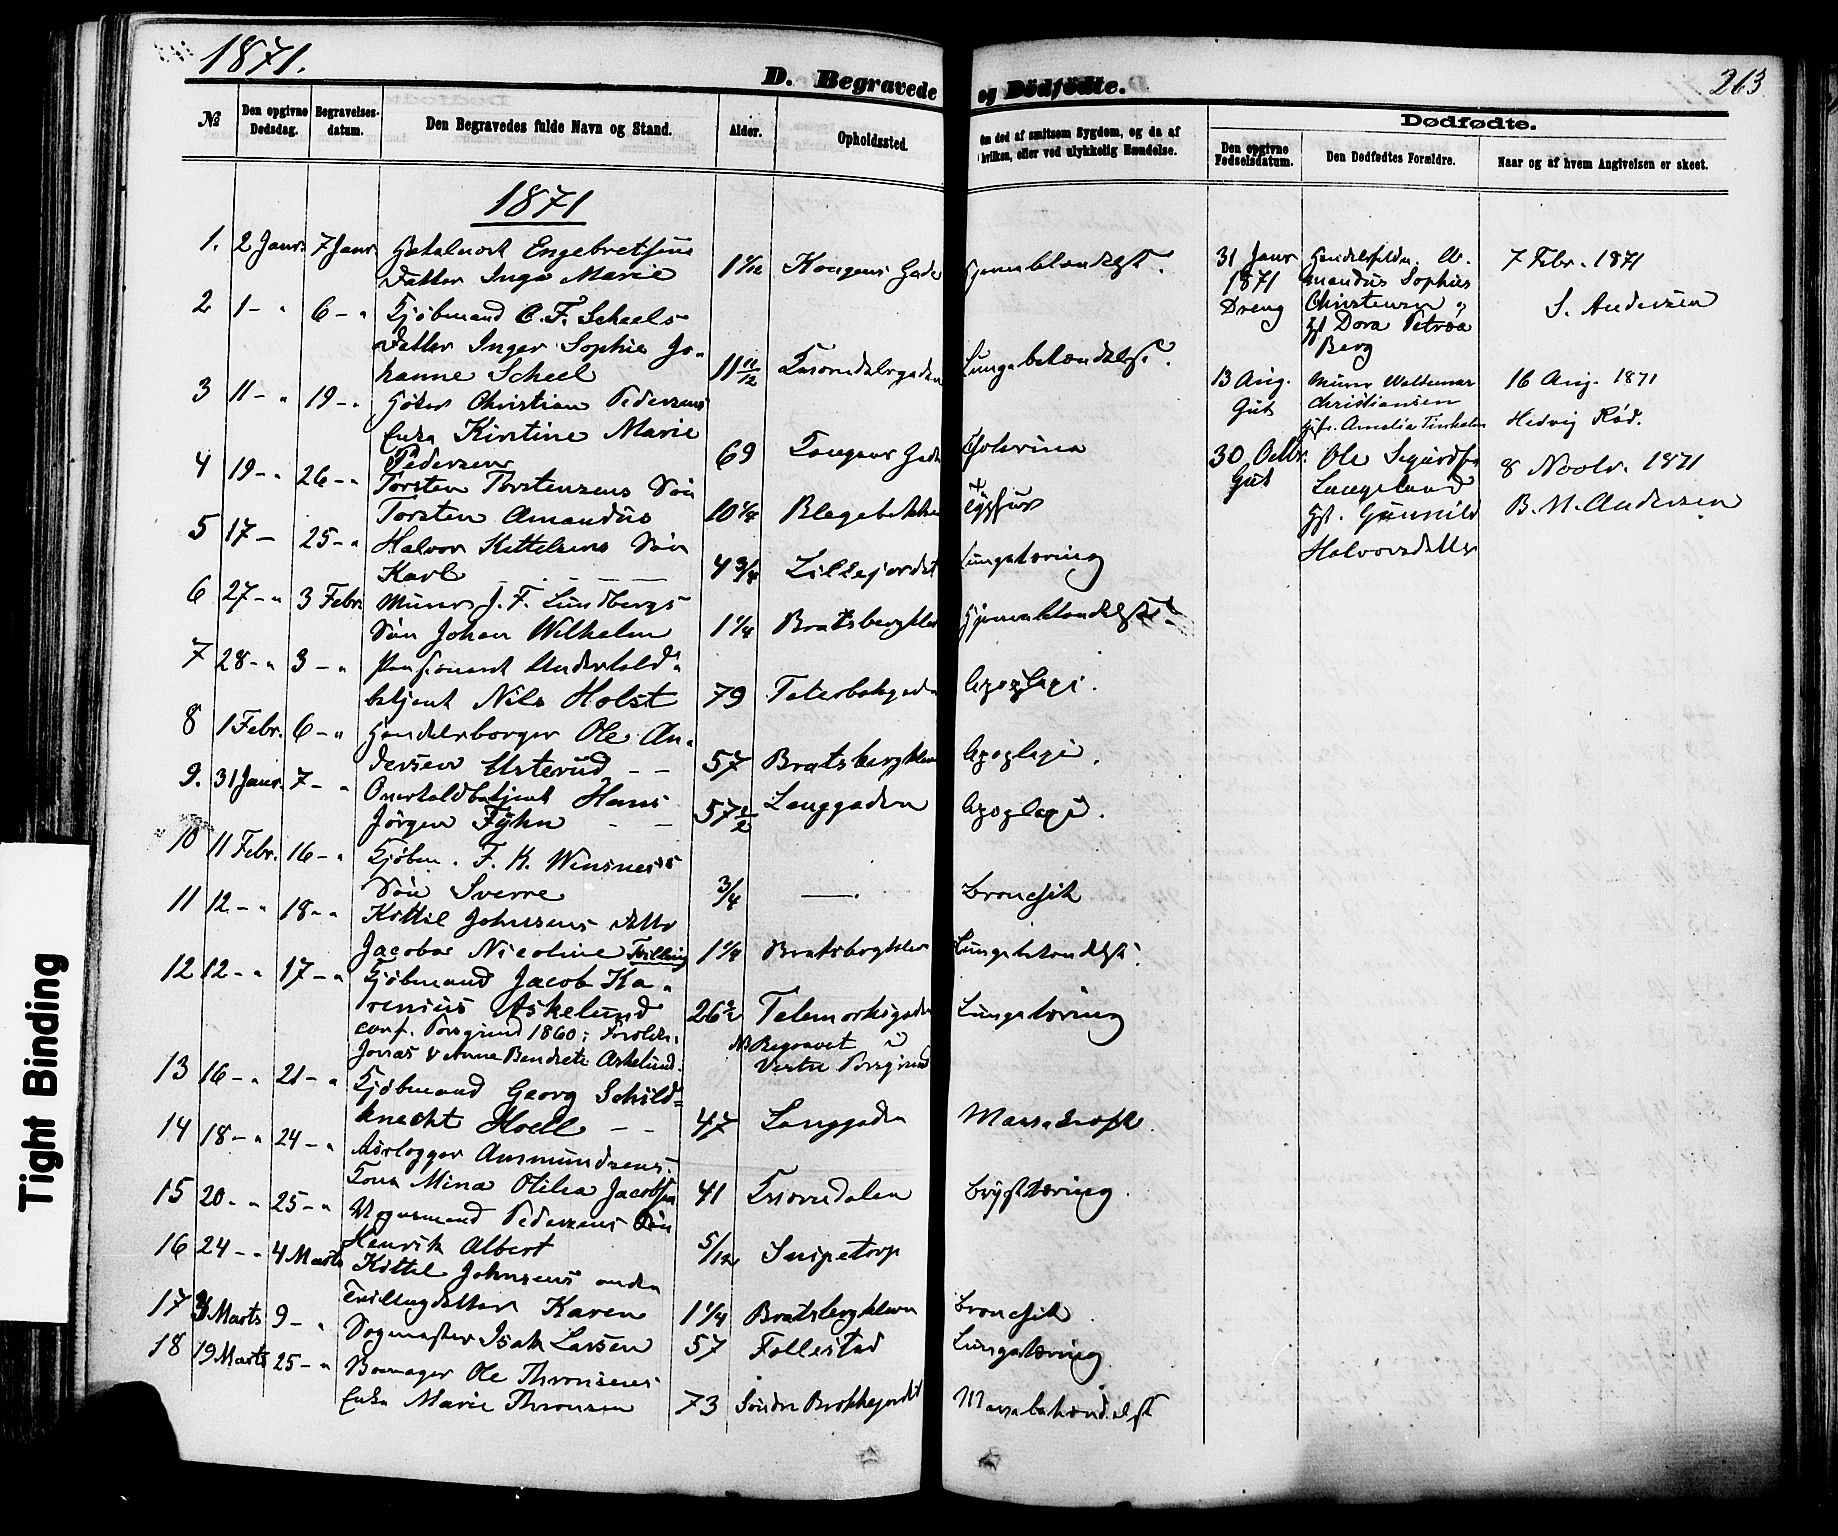 1871.
D. Begravede og Dødfødte.
263
№
Den opgivne Dødsdag.
Begravelses-datum.
Den Begravedes fulde Navn og Stand.
Alder.
Opholdssted.
Om død af smitsom Sygdom, og da af hvilken, eller ved ulykkelig Hændelse.
Dødfødte.
Den opgivne Fødselsdatum.
Den Dødfødtes Forældre.
Naar og af hvem Angivelsen er skeet.
1871
1. 2 Janr. 7 Janr. Engebretsens
Datter Inga Marie 1 1/12 Kongens Gade
2 1 - " 6 - " Kjøbmand C. F. Scheels
Datter Inger Sophie Jo-
hanne Scheel 11 11/12 Lungebetændelse.
3 11 - " 19 - " Christian Pedersens
Enke Kirstine Marie
Pedersen 69 Kongens Gade Cholerina
4 19 - " 26 - " Torsten Torstensens Søn
Torsten Amandus 10 1/4 Blegebakken Tyfus
5 17 - 25 - " Halvor Kittelsens Søn
Karl 4 3/4 Lillejordet Lungetæring
6 27 - " 3 Febr. Murer J. F. Lundbergs
Søn Johan Wilhelm 1 1/4 Bratsbergklev
7 28 - " 3 - " Pensioneret Undertold-
betjent Nils Holst 79 Apoplexi.
8 1 Febr. 6 - " Handelsborger Ole An-
dersen Usterud - - 57 Bratsbergklev Apoplexi.
9. 31 Janr. 7 - " Overtoldbetjent Hans
Jörgen Fÿhn - - 57 1/2 Langgaden Apoplexi.
10 11 Febr. 16 - " Kjøbm. F. K. Winsness
Søn Sverre 3/4 — Broncfit
11 12 - " 18 - " Kittil Johnsens Datter
Jacobae Nicoline Tvilling 1 1/4 Bratsbergklev Lungebetændelse.
12 12 - " 17 - " Kjøbmand Jacob Ka-
renius Askelund 26 1/2 Telemarksgaden Lungetæring
conf. Porsgrund 1860; Forældre:
Jonas & Anne Bendicte Askelund.
NB Begravet i
Vestre Porsgrund
13 16 - " 21 - " Kjøbmand Georg Schild=
knecht Hoell - - 47 Langgaden
14 18 - " 24 - " Aarlogger Amundsens
Kona Mina Otilia Jacobsen 41 Brÿsttæring.
15 20 - " 25 - " Pedersens Søn
Henrik Albert 5/12 Snipetorp
16 24 - " 4 Marts Kittel Johnsens anden
Tvillingdatter Karen 1 1/4 Bratsbergkleven Broncfit
17 3 Marts 9 - " Sogmester Isak Larsen 57 Follestad Lungetæring
18 19 Marts 25 - " Ole Thronsens
Enke Marie Thronsen 73 Søndre Brekkejordet
31 Janr
1871
Dreng
Handelsfuldm. A-
mandus Sophus
Christensen og
H. Dora Petrea
Berg
7 Febr. 1871
S. Andersen
13 Aug.
Gut
Murer Waldemar
Christiansen
Amalia
16 Aug. 1871
Hedvig Rød.
30 Octbr.
Gut
Ole Sigurds.
Langeland
H. Gunnild
Halvorsdatter
8 Novbr. 1871
B. M. Andersen
Tight Binding